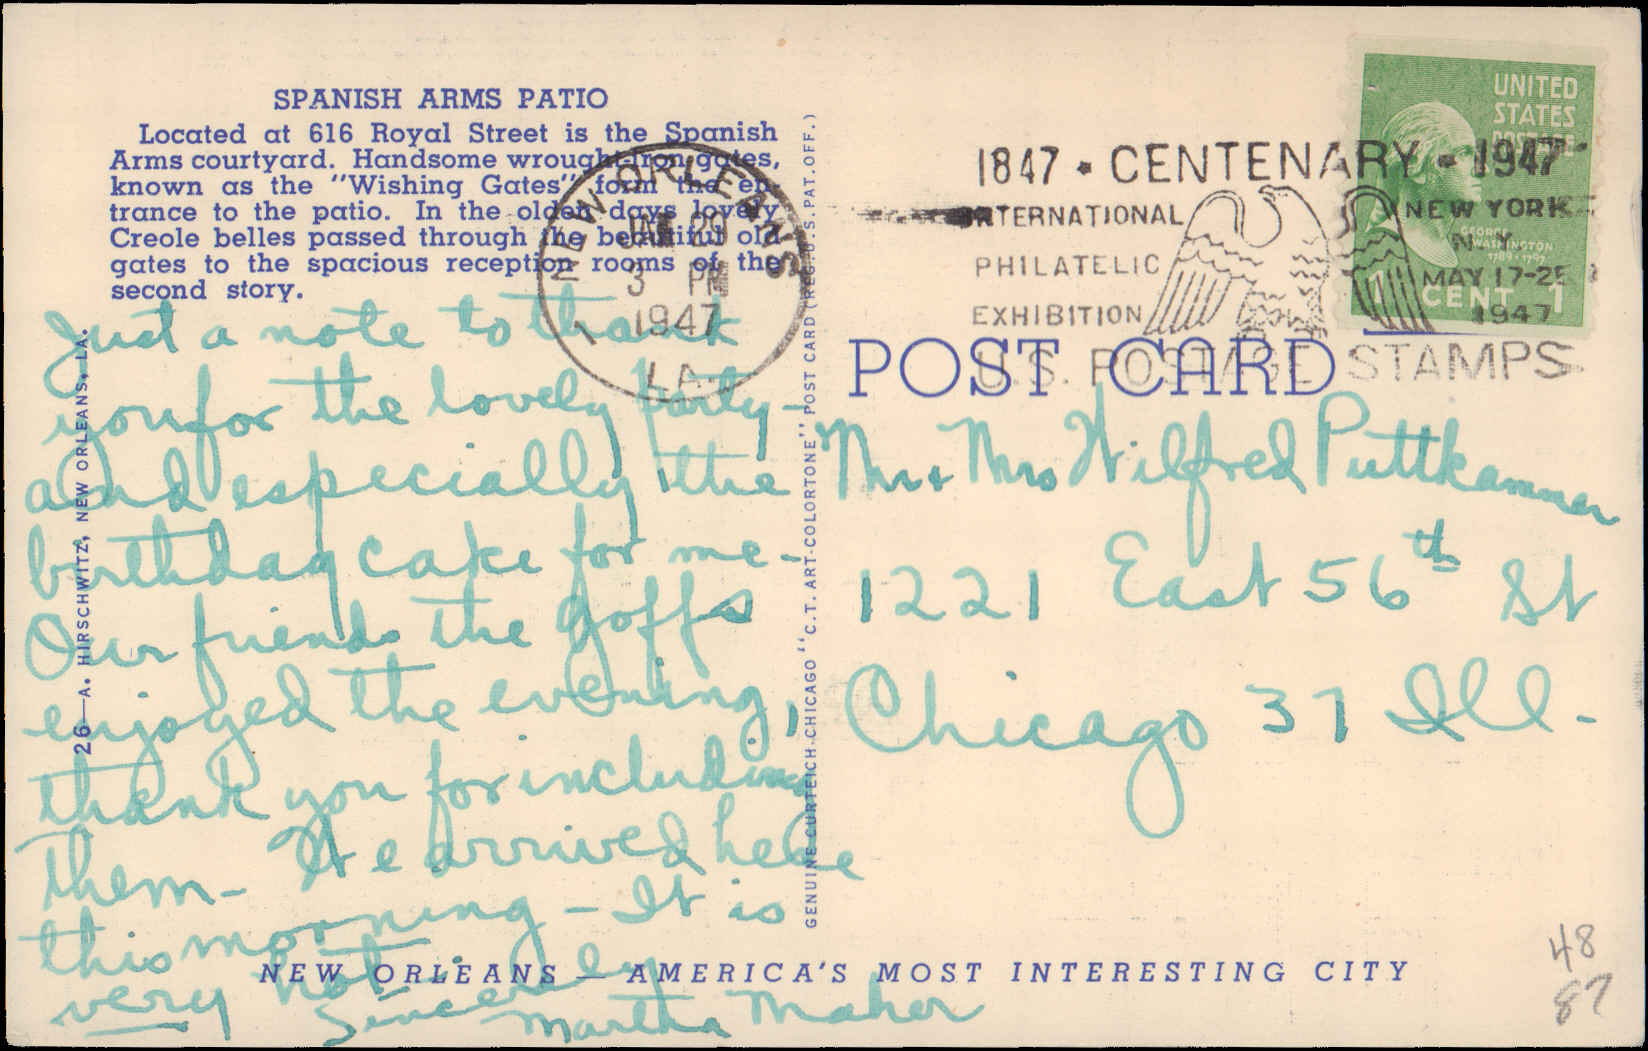 SPANISH ARMS PATIO
Located at 616 Royal Street is the Spanish
Arms courtyard. Handsome wrought-iron gates,
known as the "Wishing Gates" form the en-
trance to the patio. In the olden days lovely
Creole belles passed through the beautiful old
gates to the spacious reception rooms of the
second story.
Just a note to thank
you for the lovely party -
and especially the
birthday cake for me -
Our friends the Goffs
enjoyed the evening,
thank you for including
them - We arrived here
this morning - It is
very hot.
Sincerely
Martha Maher
26—A. HIRSCHWITZ, NEW ORLEANS, LA.
NEW ORLEANS
29
3 PM
1947
LA.
1
GENUINE CURTEICH-CHICAGO "C.T. ART-COLORTONE" POST CARD (REG. U.S. PAT. OFF.)
1847 • CENTENARY • 1947
INTERNATIONAL
PHILATELIC
EXHIBITION
U.S. POSTAGE STAMPS
NEW YORK
N.Y.
MAY 17-25
1947
UNITED
STATES
POSTAGE
GEORGE
WASHINGTON
1789-1797
1 CENT 1
POST CARD
Mr & Mrs Wilfred Puttkammer
1221 East 56th St
Chicago 37 Ill.
NEW ORLEANS — AMERICA'S MOST INTERESTING CITY
48
87